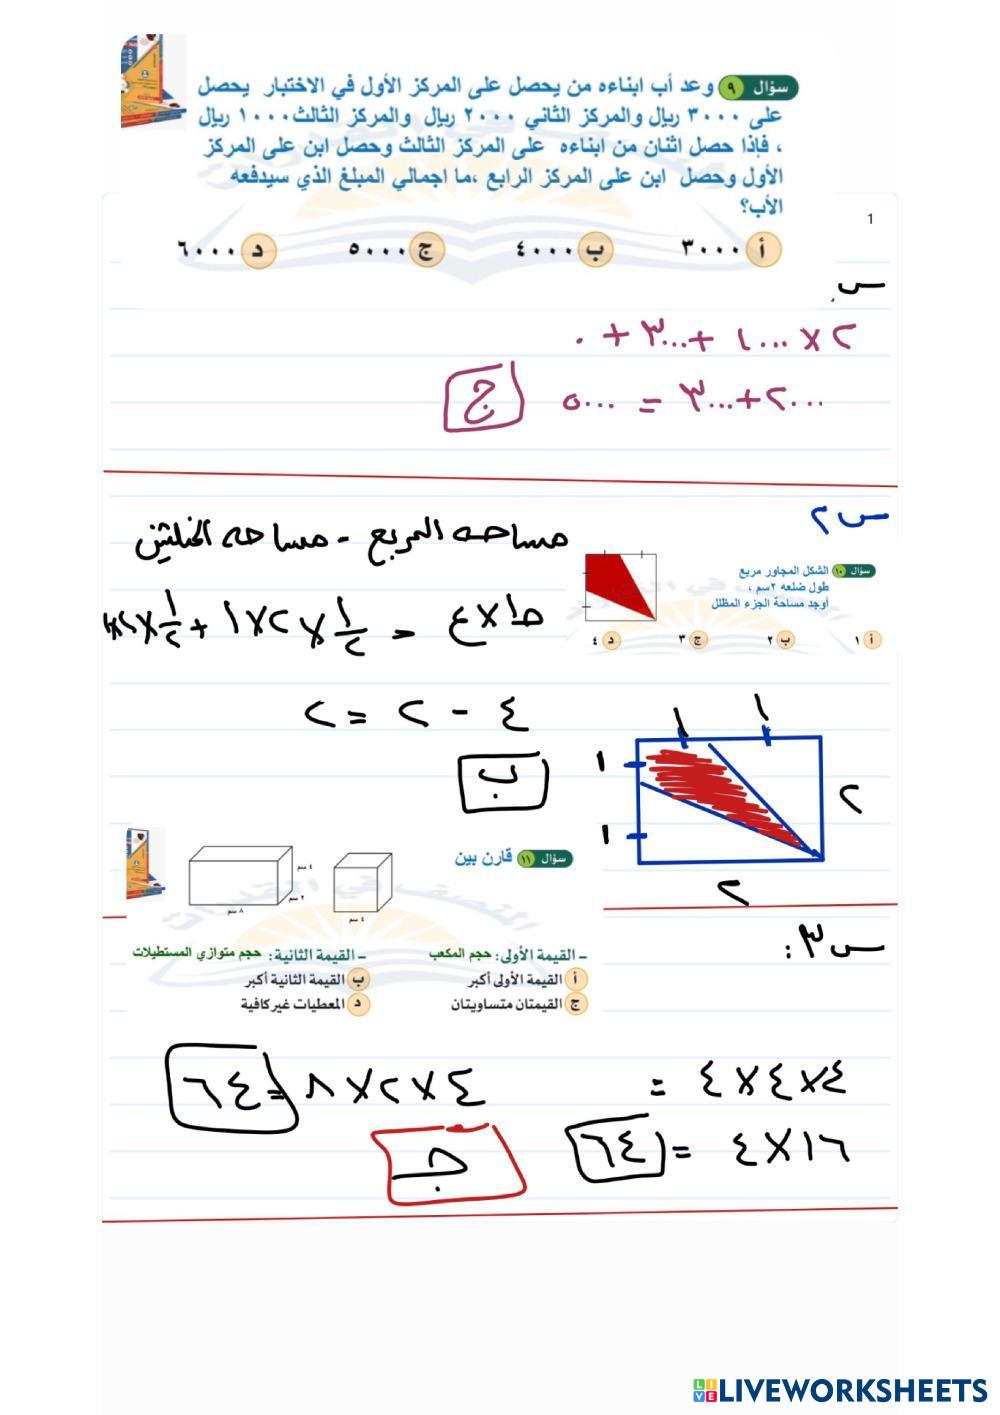 سؤال ٩ وعد أب ابناءه من يحصل على المركز الأول في الاختبار يحصل
على ٣٠٠٠ ريال والمركز الثاني ٢٠٠٠ ريال والمركز الثالث ١٠٠٠ ريال
، فإذا حصل اثنان من ابناءه على المركز الثالث وحصل ابن على المركز
الأول وحصل ابن على المركز الرابع ،ما اجمالي المبلغ الذي سيدفعه
الأب؟
1
أ ٣٠٠٠ ب ٤٠٠٠ ج ٥٠٠٠ د ٦٠٠٠
س
٢ × ١٠٠٠ + ٣٠٠٠ + ٠
٢٠٠٠ + ٣٠٠٠ = ٥٠٠٠ ج
س٢
مساحه المربع - مساحه المثلثين
سؤال ١٠ الشكل المجاور مربع
طول ضلعه ٢سم ،
أوجد مساحة الجزء المظلل
أ ١ ب ٢ ج ٣ د ٤
٤ - ٢ = ٢
ب
١ ١
١
١
٢
٢
سؤال ١١ قارن بين
٤ سم
٢ سم
٨ سم
٤ سم
س٣:
- القيمة الأولى: حجم المكعب - القيمة الثانية: حجم متوازي المستطيلات
أ القيمة الأولى أكبر ب القيمة الثانية أكبر
ج القيمتان متساويتان د المعطيات غير كافية
٤×٤×٤ =
٤×٢×٨ = ٦٤
١٦×٤ = ٦٤
ج
LIVEWORKSHEETS